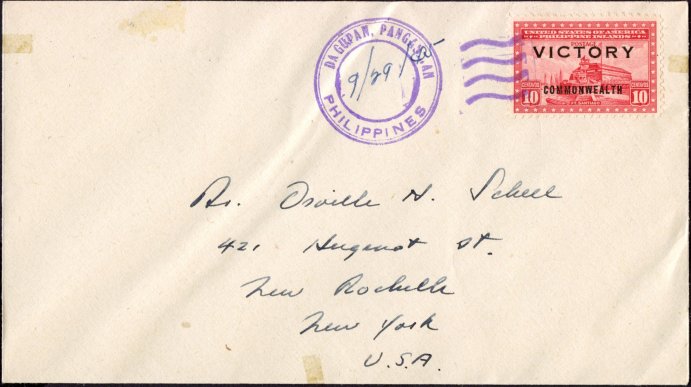 DAGUPAN, PANGASINAN
9/29/45
PHILIPPINES
UNITED STATES OF AMERICA
PHILIPPINE ISLANDS
VICTORY
COMMONWEALTH
CENTAVOS
CENTAVOS
10
10
Dr. Orville N. Schell
421 Hugenot St.
New Rochelle
New York
U.S.A.